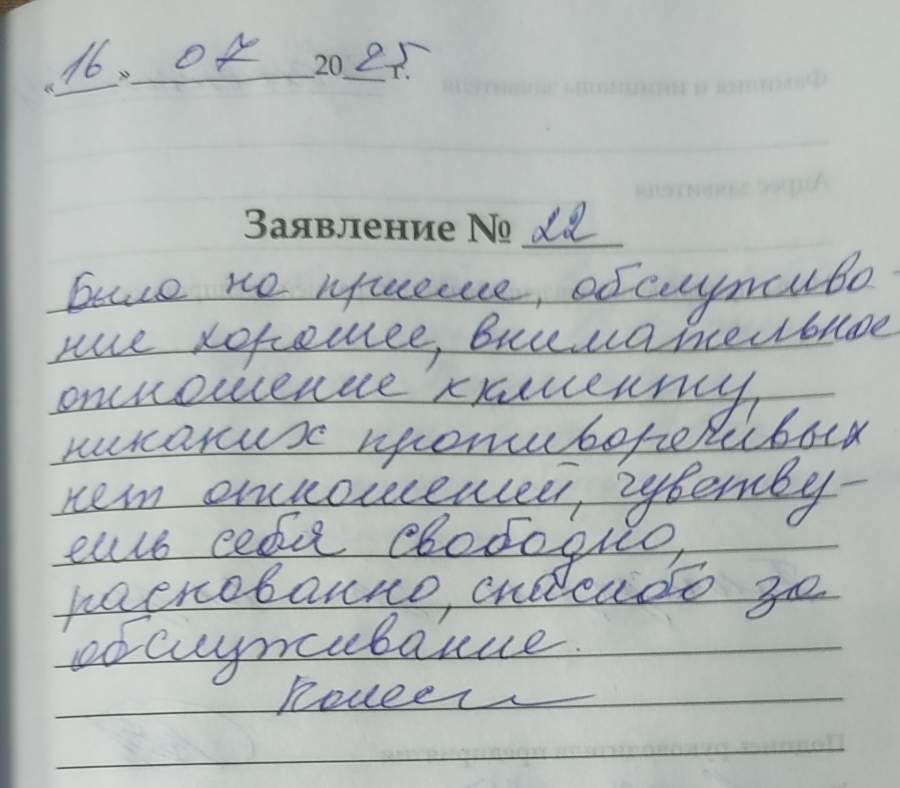 «16» 07 2025 г.
Заявление № 22
Была на приеме, обслужива-
ние хорошее, внимательное
отношение к клиенту,
никаких противоречивых
нет отношений, чувству-
ешь себя свободно,
раскованно, спасибо за
обслуживание.